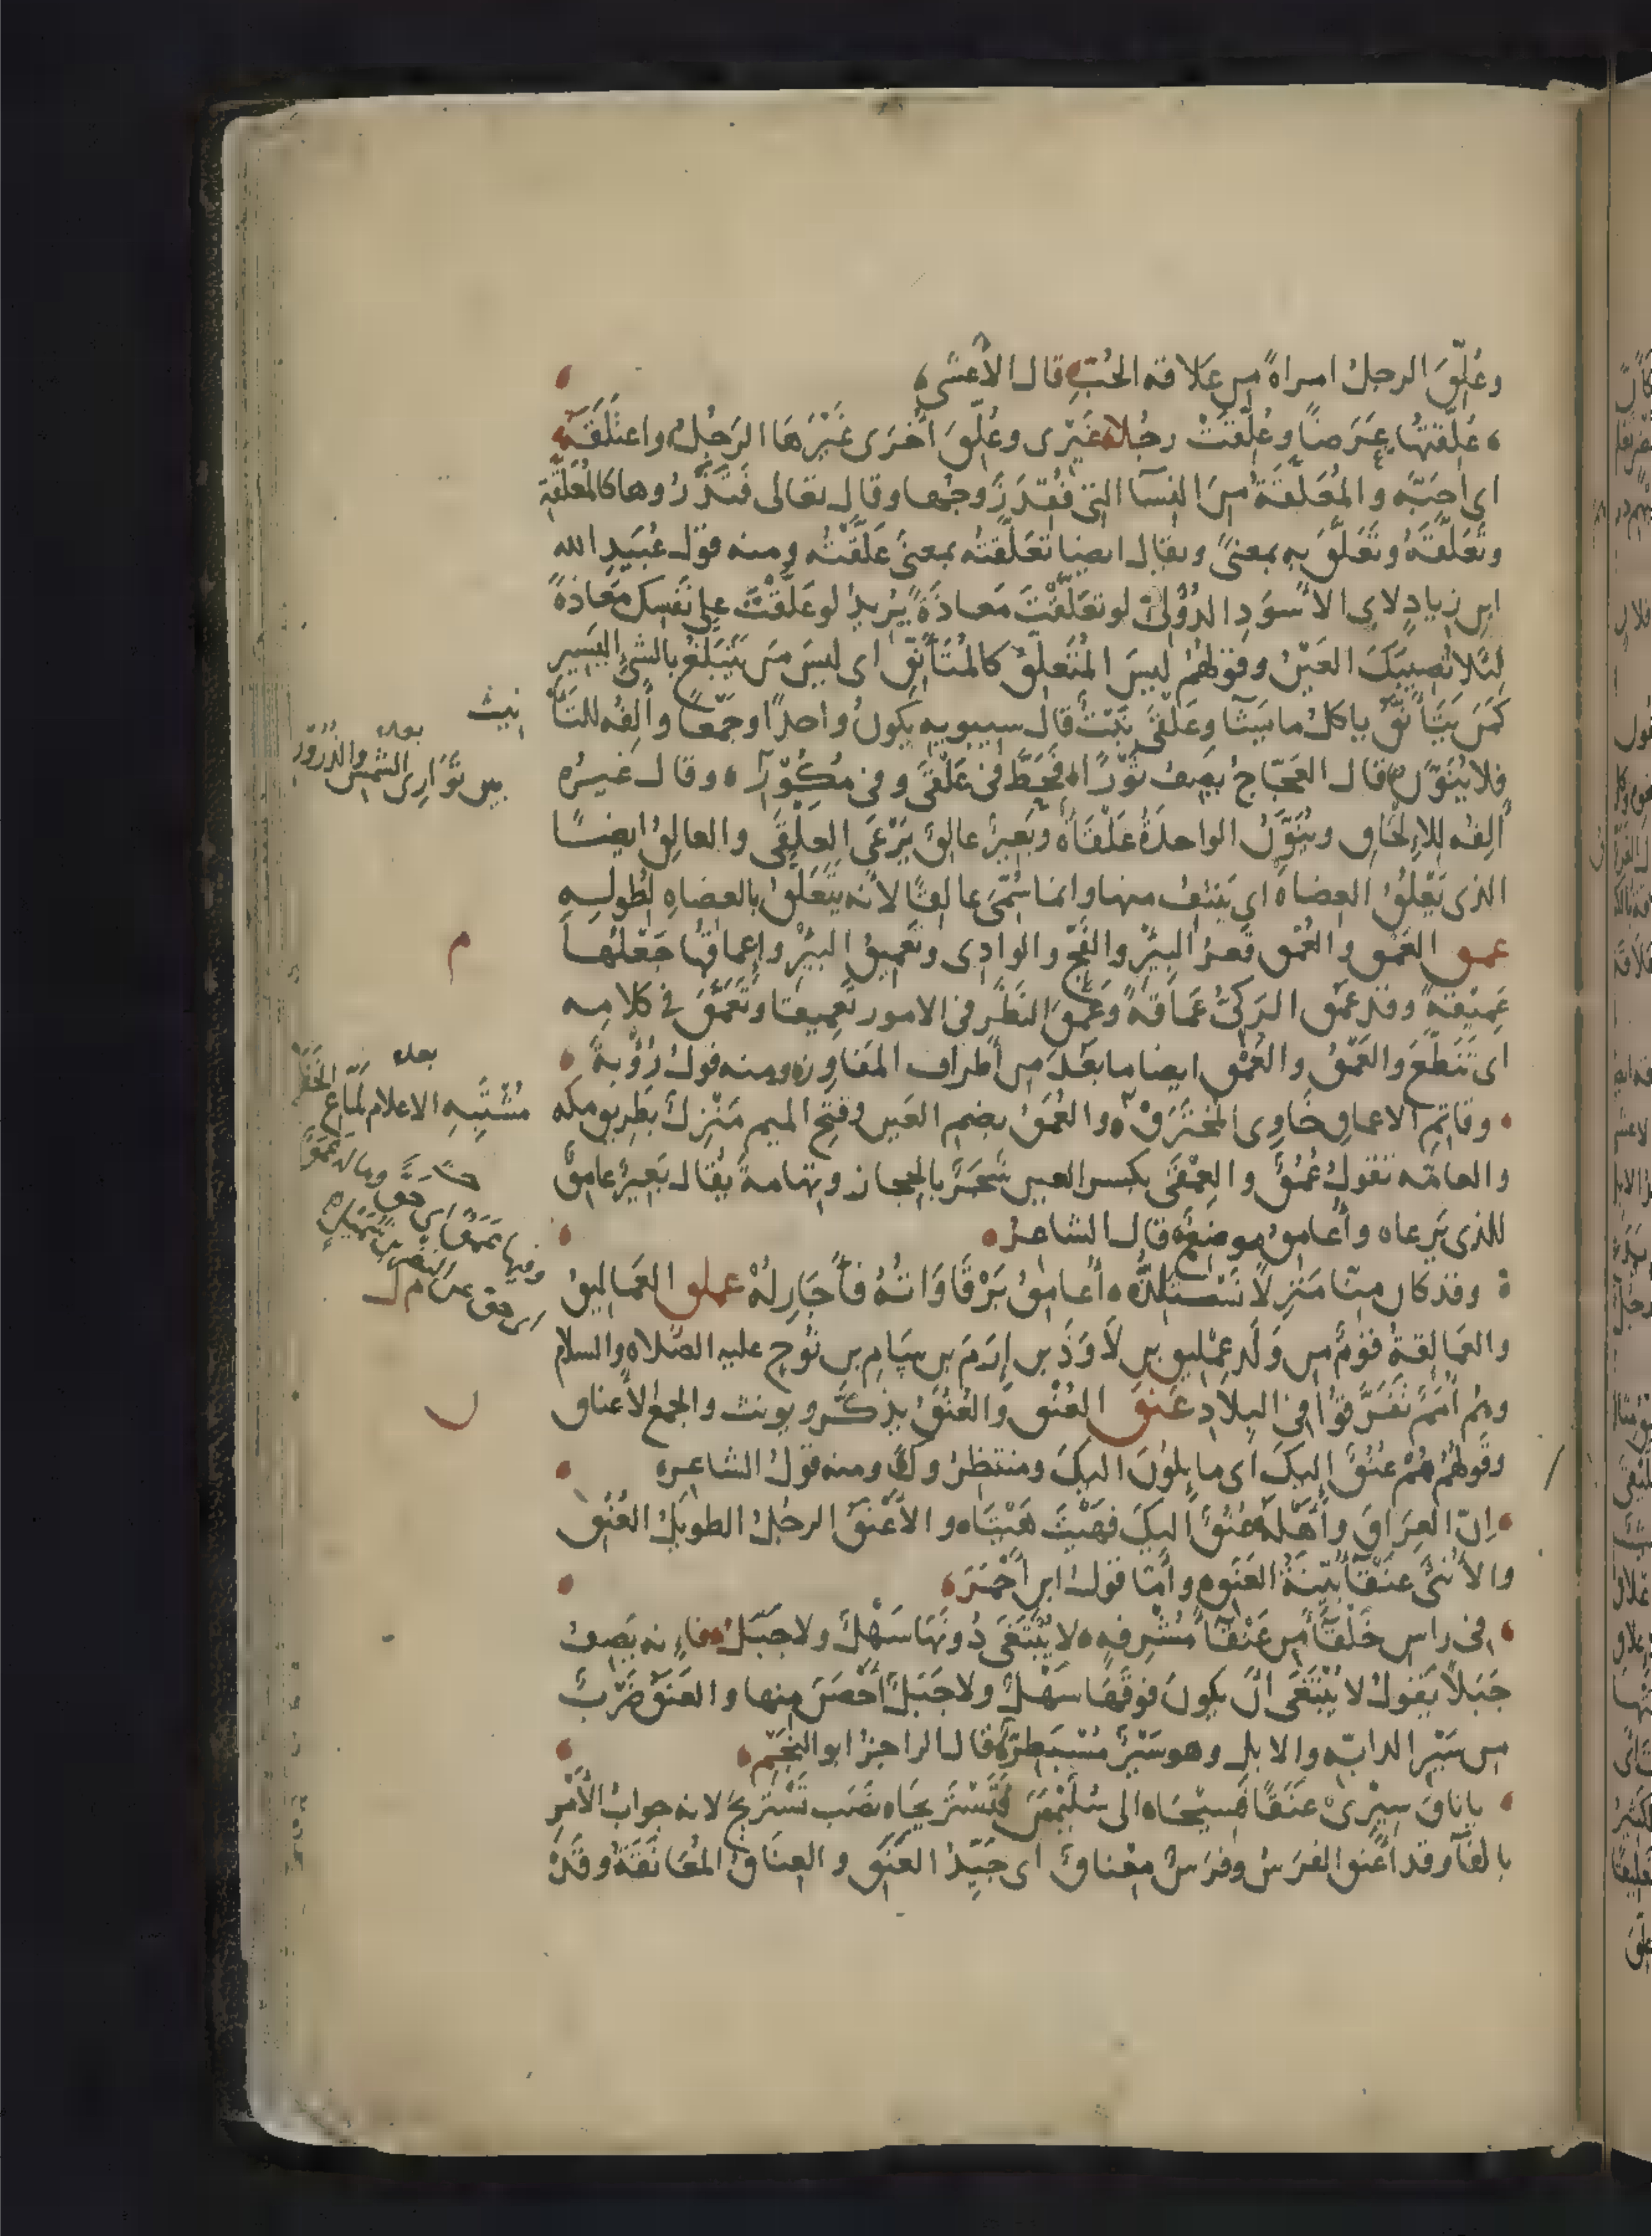 وعُلِّقَ الرجلُ امراةً من عَلاقة الحُبِّ قال الأعشى
عُلِّقتُها عَرَضًا وعُلِّقَتْ رجُلًا غَيْرى وعُلِّقَ أُخْرَى غَيْرَهَا الرَجُلُ واعتَلَقَهُ
اى أحَبَّه والمُعَلَّقَةُ مِنَ النِسَآ التى فُقِدَ زَوجُها وقال تعالى فَتَذَرُوها كالمُعَلَّقَةِ
وتَعَلَّقَهُ وتَعَلَّقَ به بمعنىً ويقال ايضا تَعَلَّقتُه بمعنى عَلَّقْتُه ومنه قولُ عُبَيدِ الله
ابن زيادٍ لابى الاسوَدِ الدُؤَلىّ لو تعَلَّقْتَ مَعاذَةً يُرِيدُ لو عَلَّقْتَ على نَفسِك مَعَاذَةً
لِئلا تُصِيبَكَ العَيْنُ وقولهُمْ ليسَ المُتَعلِّقُ كالمُتَأَنِّقِ اى ليسَ مَن يَتَبَلَّغُ بالشىءِ اليَسِير
كمَن يَتَأَنَّقُ ياكلُ ما يشآ وعَلْقَى نَبْتٌ قال سيبويه يكونُ واحدًا وجَمْعًا وأَلِفُه للتَأ
نيث
فلا يُنَوَّن قال العَجّاجُ يَصِفُ ثَوْرًا فَحَطَّ فى عَلْقَى وفى مُكُوْرِ وقال غيرُه
بعده
بين تَوَارِى الشمسِ والذُرُوْرِ
أَلِفُه للإلحَاق ويُنَوَّنُ الواحدَةُ عَلْقَاةٌ وبَعِيرٌ عالِقٌ يَرْعَى العَلْقَى والعالِقُ ايضًا
الذى يَعْلُقُ العِضاهَ اى يَنتِفُ منها وانما سُمّىَ عالِقًا لأنه يَتَعَلَّقُ بالعضاهِ لطُولِه
عمق العَمْق والعُمْق قعرُ البِيْرِ والفَجِّ والوادِى وتَعمِيقُ البِيْرِ وإعماقُها جَعْلُهَا
م
عَمِيْقةً وقد عَمُقَ الرَكىُّ عَمَاقَةً وعَمَّقَ النَظَرَ فى الامور تَعمِيقًا وتَعَمَّقَ فى كلامِه
اى تَنَطَّعَ والعَمْقُ والعُمْق ايضا ما بَعُدَ من أَطراف المَفَاوِز ومنه قولُ رُؤْبةَ
وقاتِمِ الاعماقِ خَاوِى المُخْتَرَقْ والعُمَقُ بضم العَين وفتح الميم مَنْزِلٌ بطريق مكه
بعده
مُشْتَبِهِ الاعلام لمّاعِ الخَفَقْ
والعامّه تقولُ عُمُقٌ والعِمْقَى بكسر العين شَجَرٌ بالحجاز وتهامةَ يُقال بَعِيرٌ عامِقٌ
للذى يَرعاه وأُعامِقُ موضعٌ قال الشاعرُ
وقد كان منّا مَنزِلًا نَسْتَلِذُّه أُعامِقُ بَرْقَاوَاتُهُ فأَجَاوِلُهْ عملق العَمَاليقُ
والعَمَالِقةُ قومٌ من وَلَد عِمْلِيق بن لَاوَذَ بن إرَمَ بن سَامِ بن نُوحٍ عليه الصلاه والسلام
وهُم أُمَمٌ تَفَرَّقُوْا فى البِلادِ عنق العُنْق والعُنُقُ يُذكَّر ويونث والجمعُ الاعناق
وقولُهُمْ هُمْ عُنُقٌ إليكَ اى مايلُونَ اليكَ ومنتظِرُوكَ ومنه قولُ الشاعر
إنّ العِرَاقَ وأَهْلَهُ عُنُقٌ اليكَ فهَيْتَ هَيْتَا والأَعْنَقُ الرجُلُ الطويلُ العُنُقِ
والأُنثى عَنْقَآ بَيّنَةُ العَنَق وأمّا قولُ ابن أَحْمَرَ
فى راس خَلْقَآ مِن عَنْقَآ مُشْرِفه لا يُبْتَغَى دُونَهَا سَهْلٌ ولا جَبَلُ فإنه يَصِفُ
جَبَلًا يَقولُ لا يُبْتَغَى أنْ يكونَ فوقَهَا سَهْلٌ ولا جَبَلٌ أَحْصَنَ مِنها والعَنَقُ ضَرْبٌ
من سَيْرِ الدابّه والابل وهو سَيْرٌ مُسْبَطِرٌّ قال الراجزُ ابو النَجْمِ
يا ناقَ سِيْرِىْ عَنَقًا فَسِيْحَا الى سُلَيْمٰنَ فَنَسْتَرِيحَا نَصَبَ نَسْتَرِيحَ لانه جوابُ الأمْرِ
بالفآ وقد أَعْنَقَ الفَرَسُ وفَرَسٌ مِعْناقٌ اى جَيّدُ العَنَقِ والعِنَاقُ المُعَانَقَةُ وقَدْ